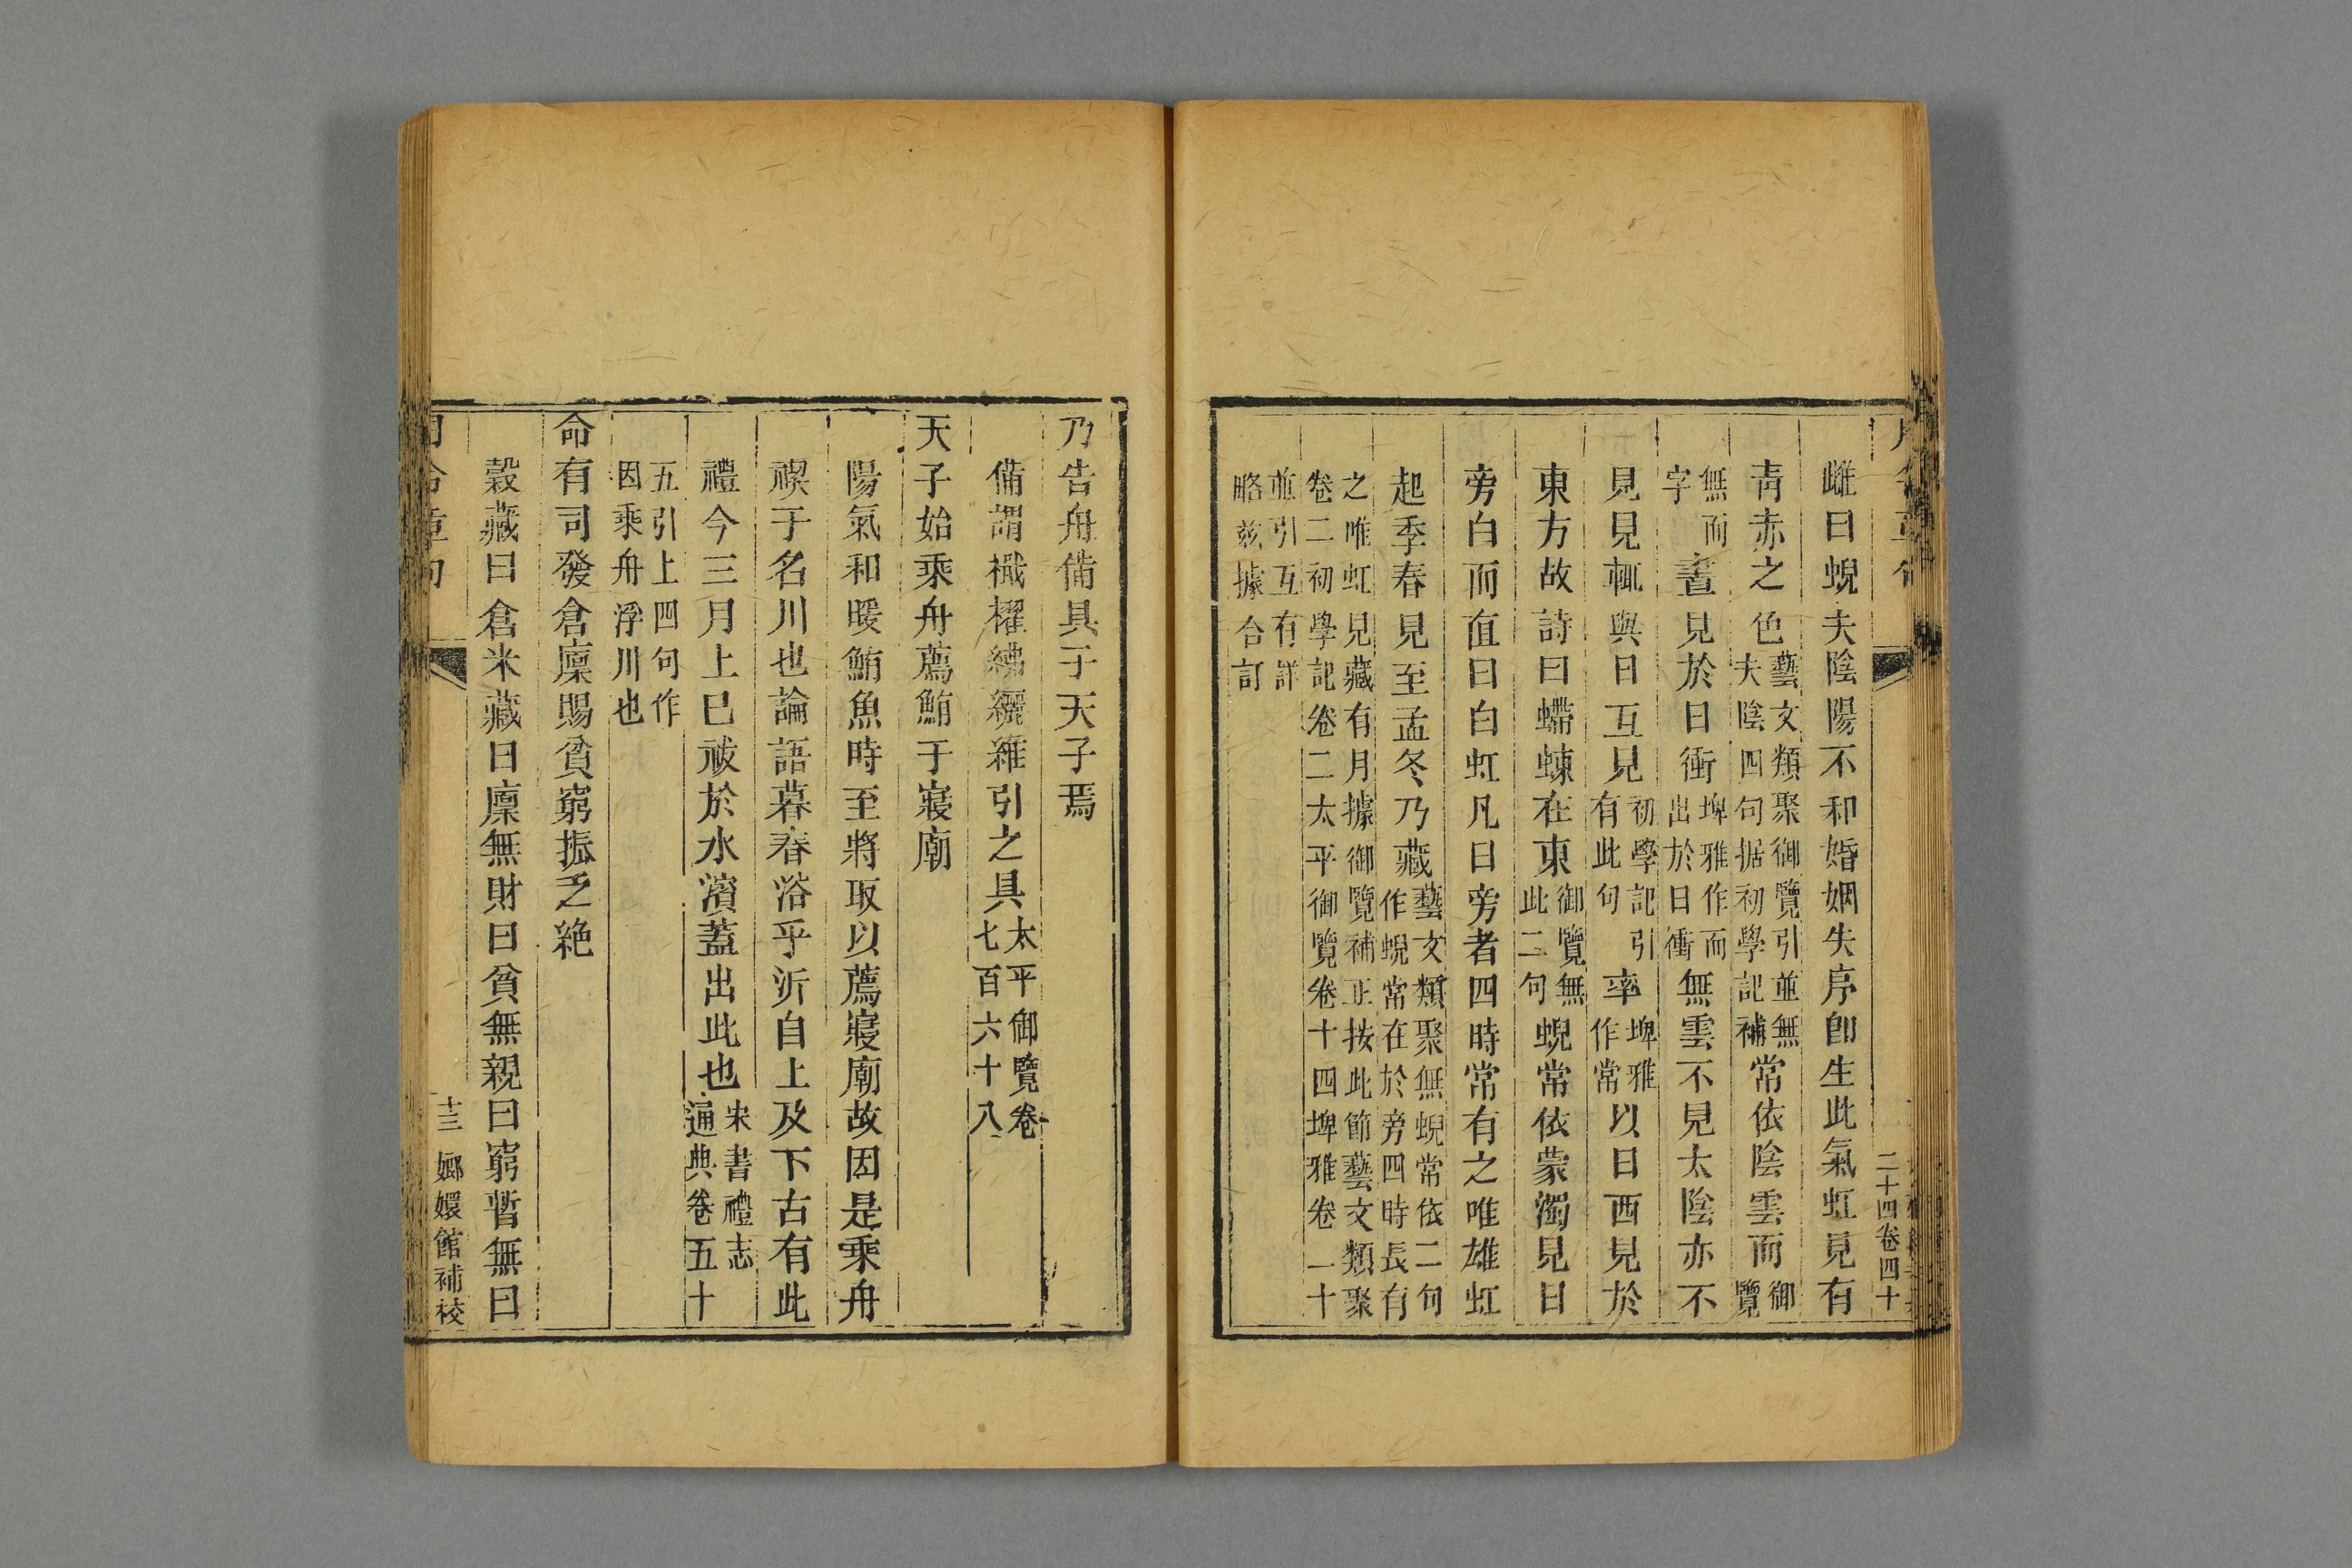 雌曰蜺夫陰陽不和婚姻失序卽生此氣虹見有
青赤之色藝文類聚御覽引並無夫陰四句据初學記補常依陰雲而御覽
無而字晝見於日衝埤雅作而出於日衝無雲不見太陰亦不
見見輒與日互見初學記引有此句率埤雅作常以日西見於
東方故詩曰蝃蝀在東御覽無此二句蜺常依蒙濁見日
旁白而直曰白虹凡日旁者四時常有之唯雄虹
起季春見至孟冬乃藏藝文類聚無蜺常依二句作蜺常在於旁四時長有
之唯虹見藏有月據御覽補正按此節藝文類聚
卷二初學記卷二太平御覽卷十四埤雅卷二十
並引互有詳
略茲據合訂
二十四卷四十
乃告舟備具于天子焉
備謂檝櫂紼纚維引之具太平御覽卷七百六十八
天子始乘舟薦鮪于寢廟
陽氣和暖鮪魚時至將取以薦寢廟故因是乘舟
禊于名川也論語暮春浴乎沂自上及下古有此
禮今三月上巳祓於水濱蓋出此也宋書禮志通典卷五十
五引上四句作
因乘舟浮川也
命有司發倉廩賜貧窮振乏絶
穀藏曰倉米藏曰廩無財曰貧無親曰窮暫無曰
月令章句
十三
嫏嬛館補校